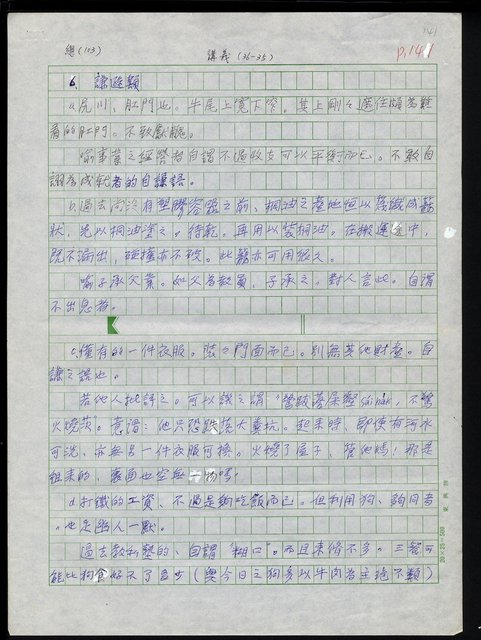 141
總(103)
講義(36-35)
P.141
6. 謙遜類
a. 尻川、肛門也。牛尾上寬下窄,其上剛々遮住頗為難
看的肛門。不敢獻醜。
喻事業之經營者自謂不過收支可以平衡而已。不敢自
詡為成就者的自謙語。
b. 過去尚沒有塑膠容器之前、桐油之產地但以落織成簍
狀、先以桐油塗之。待乾,再用以裝桐油。在搬運途中,
既不漏出,碰撞亦不破。此簍亦可用很久。
喻子承父業。如父為教員,子承之。對人言此。自謂
不出息者。
c. 僅有的一件衣服。裝々門面而已。別無其他財產。自
謙之詞也。
若他人批評之。可以譏之謂「驚跋落屎壑,不驚
火燒茨」。意謂:他只恐跌落大糞坑。起來時,即使有河水
可洗,亦無另一件衣服可換。火燒了屋子,管他嗎!那是
租來的,裏面也空無一物嗎!
d. 打鐵的工資、不過是夠吃飯而已。但利用狗、夠同音
。也是幽人一默。
過去教私塾的、自謂「糊口」。而且束脩不多。三餐可
能比狗食好不了多少(與今日之狗多以牛肉為主絕不類)
20×25=500